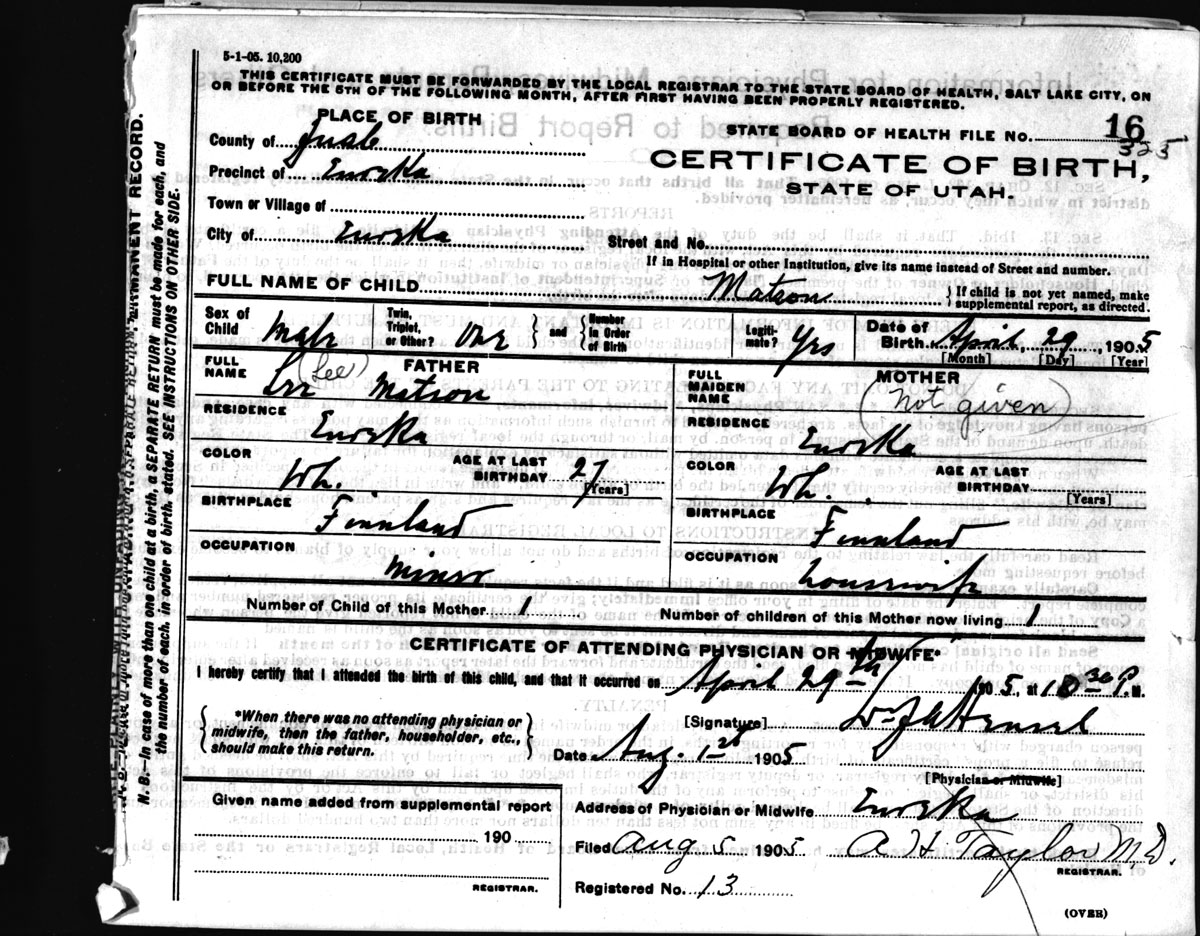 5-1-05. 10,200
THIS CERTIFICATE MUST BE FORWARDED BY THE LOCAL REGISTRAR TO THE STATE BOARD OF HEALTH, SALT LAKE CITY, ON
OR BEFORE THE 5TH OF THE FOLLOWING MONTH, AFTER FIRST HAVING BEEN PROPERLY REGISTERED.
PLACE OF BIRTH
County of Juab
Precinct of Eureka
Town or Village of
City of Eureka
STATE BOARD OF HEALTH FILE NO. 16
325
CERTIFICATE OF BIRTH,
STATE OF UTAH.
Street and No.
If in Hospital or other Institution, give its name instead of Street and number.
FULL NAME OF CHILD Matson } If child is not yet named, make supplemental report, as directed.
Sex of Child Male Twin, Triplet, or Other? One } and { Number in Order of Birth Legiti-mate? Yes Date of Birth April 29, 1905
[Month] [Day] [Year]
FATHER
FULL NAME Lee (Lee) Matson
RESIDENCE
Eureka
COLOR Wh. AGE AT LAST BIRTHDAY 27 [Years]
BIRTHPLACE
Finnland
OCCUPATION
Miner
MOTHER
FULL MAIDEN NAME (Not given)
RESIDENCE
Eureka
COLOR Wh. AGE AT LAST BIRTHDAY [Years]
BIRTHPLACE
Finnland
OCCUPATION
Housewife
Number of Child of this Mother 1 Number of children of this Mother now living 1
CERTIFICATE OF ATTENDING PHYSICIAN OR MIDWIFE*
I hereby certify that I attended the birth of this child, and that it occurred on April 29th 1905, at 10 30 P. M.
{ *When there was no attending physician or midwife, then the father, householder, etc., should make this return. }
[Signature] Dr
Date Aug. 1st 1905
[Physician or Midwife]
Given name added from supplemental report
190
REGISTRAR.
Address of Physician or Midwife Eureka
Filed Aug 5 1905 A H Taylor M.D.
REGISTRAR.
Registered No. 13
(OVER)
N. B.—In case of more than one child at a birth, a SEPARATE RETURN must be made for each, and
the number of each, in order of birth, stated. SEE INSTRUCTIONS ON OTHER SIDE.
PERMANENT RECORD.